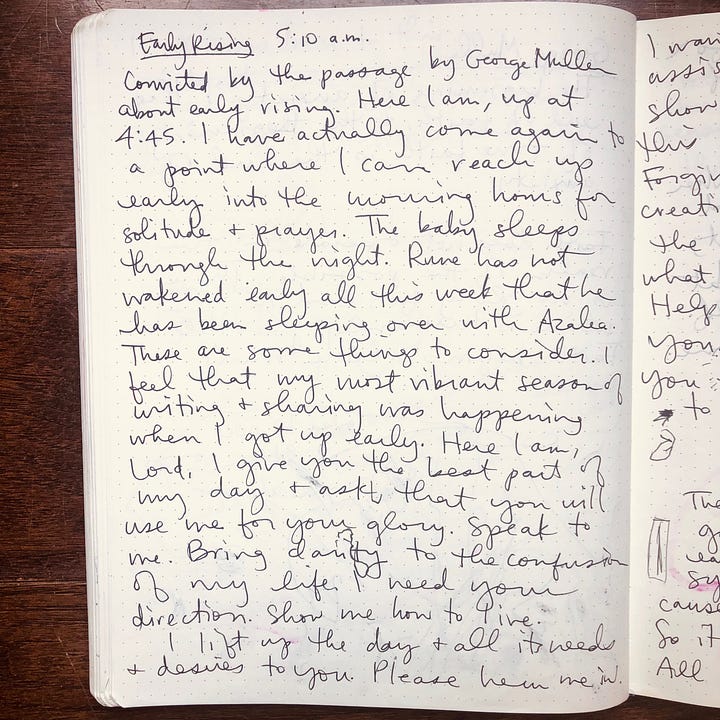 Early Rising 5:10 a.m.
Convicted by the passage by George Muller
about early rising. Here I am, up at
4:45. I have actually come again to
a point where I can reach up
early into the morning hours for
solitude + prayer. The baby sleeps
through the night. Rune has not
wakened early all this week that he
has been sleeping over with Azalea.
These are some things to consider. I
feel that my most vibrant season of
writing + sharing was happening
when I got up early. Here I am,
Lord, I give you the best part of
my day + ask that you will
use me for your glory. Speak to
me. Bring clarity to the confusion
of my life. I need your
direction. Show me how to live.
I lift up the day + all its needs
+ desires to you. Please hem me in.
I wan
assis
show
this
Forgiv
creati
the
what
Help
your
you
to
The
g
sy
cause
So if
All